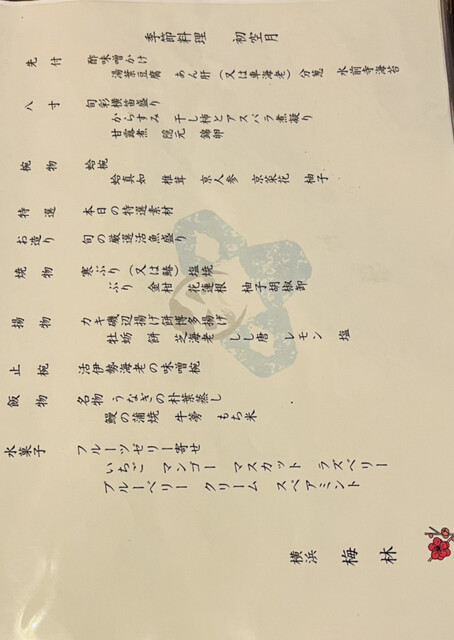 季節料理　初空月
先付　酢味噌かけ
湯葉豆腐　あん肝（又は車海老）分葱　水前寺海苔
八寸　旬彩横笛盛り
からすみ　干し柿とアスパラ煮凝り
甘露煮　隠元　錦卵
椀物　蛤椀
蛤真如　椎茸　京人参　京菜花　柚子
特選　本日の特選素材
お造り　旬の厳選活魚盛り
焼物　寒ぶり（又は鰆）塩焼
ぶり　金柑　花蓮根　柚子胡椒卸
揚物　カキ磯辺揚げ餅博多揚げ
牡蛎　餅　芝海老　しし唐　レモン　塩
止椀　活伊勢海老の味噌椀
飯物　名物うなぎの朴葉蒸し
鰻の蒲焼　牛蒡　もち米
水菓子　フルーツゼリー寄せ
いちご　マンゴー　マスカット　ラズベリー
ブルーベリー　クリーム　スペアミント
横浜　梅林